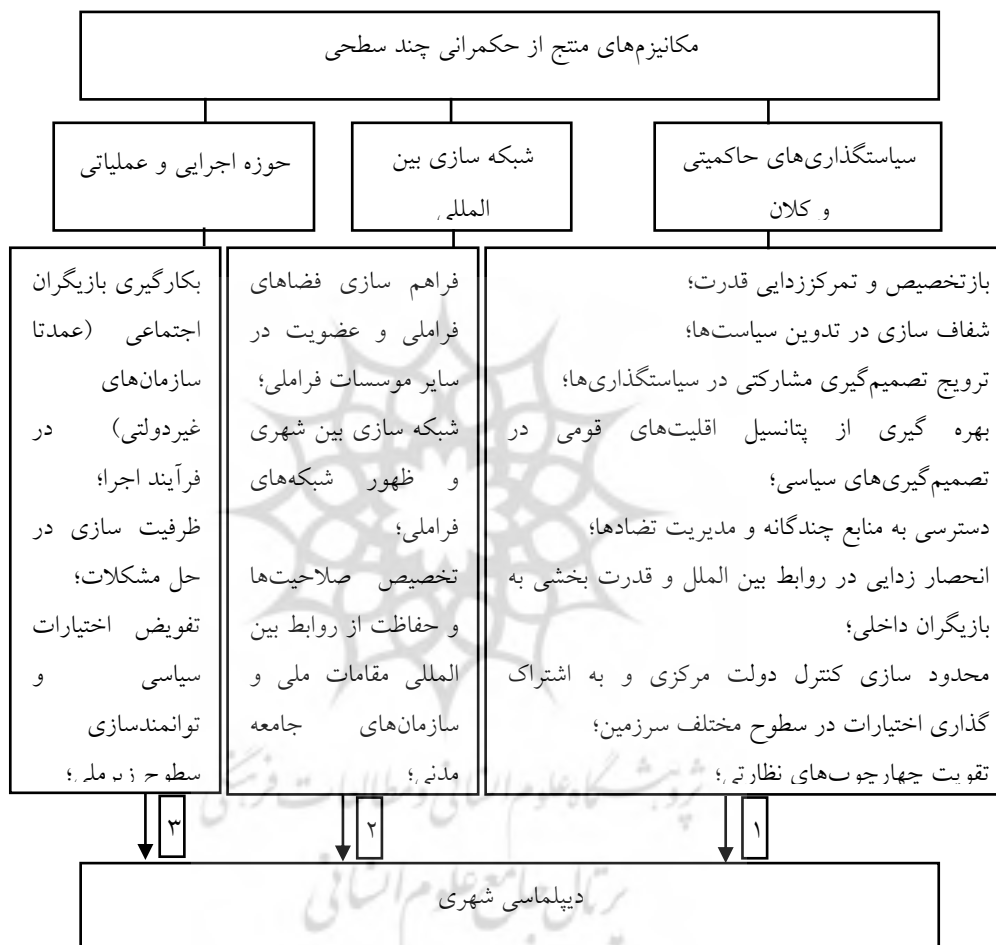 مکانیزم‌های منتج از حکمرانی چند سطحی
سیاستگذاری‌های حاکمیتی
و کلان
شبکه سازی بین
المللی
حوزه اجرایی و عملیاتی
بازتخصیص و تمرکززدایی قدرت؛
شفاف سازی در تدوین سیاست‌ها؛
ترویج تصمیم‌گیری مشارکتی در سیاستگذاری‌ها؛
بهره گیری از پتانسیل اقلیت‌های قومی در
تصمیم‌گیری‌های سیاسی؛
دسترسی به منابع چندگانه و مدیریت تضادها؛
انحصار زدایی در روابط بین الملل و قدرت بخشی به
بازیگران داخلی؛
محدود سازی کنترل دولت مرکزی و به اشتراک
گذاری اختیارات در سطوح مختلف سرزمین؛
تقویت چهارچوب‌های نظارتی؛
فراهم سازی فضاهای
فراملی و عضویت در
سایر موسسات فراملی؛
شبکه سازی بین شهری
و ظهور شبکه‌های
فراملی؛
تخصیص صلاحیت‌ها
و حفاظت از روابط بین
المللی مقامات ملی و
سازمان‌های جامعه
مدنی؛
بکارگیری بازیگران
اجتماعی (عمدتا
سازمان‌های
غیردولتی) در
فرآیند اجرا؛
ظرفیت سازی در
حل مشکلات؛
تفویض اختیارات
سیاسی و
توانمندسازی
سطوح زیرملی؛
۱
۲
۳
پژوهشگاه علوم انسانی و مطالعات فرهنگی
پرتال جامع علوم انسانی
دیپلماسی شهری